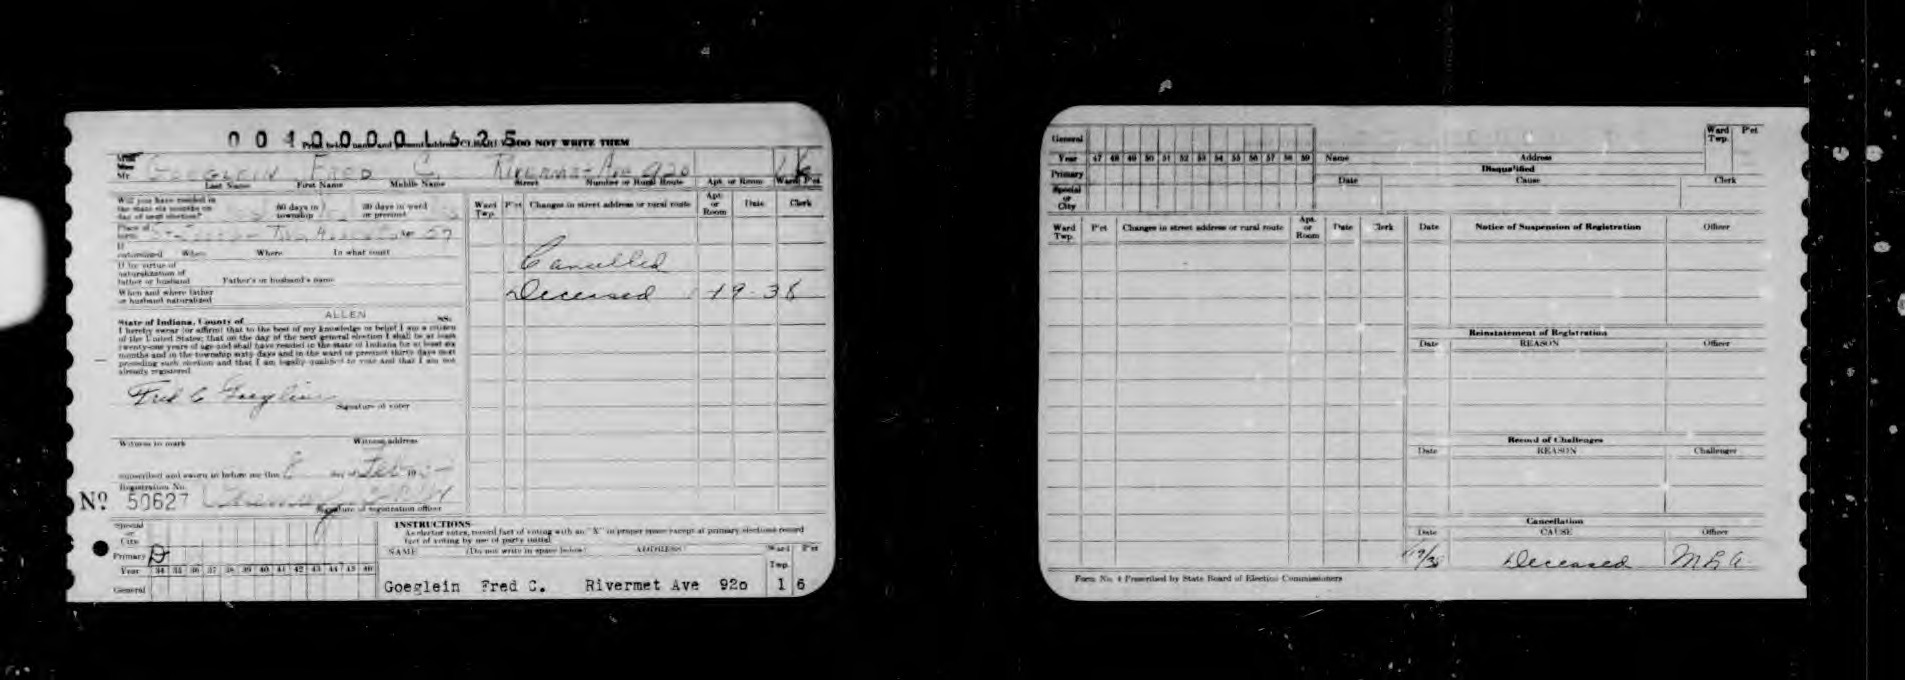 0 0 1 0 0 0 0 1 6 2 5
DO NOT WRITE THEM
Mr GOEGLEIN FRED C. RIVERMET AVE 920 1 6
Last Name First Name Middle Name Street Number or Rural Route Apt. or Room Ward Pct
Will you have resided in
the state six months on
day of next election?
60 days in
township
30 days in ward
or precinct
Place of
birth
Age 57
If
naturalized When Where In what court
If by virtue of
naturalization of
father or husband Father's or husband's name
When and where father
or husband naturalized
State of Indiana, County of ALLEN SS:
I hereby swear (or affirm) that to the best of my knowledge or belief I am a citizen
of the United States; that on the day of the next general election I shall be at least
twenty-one years of age and shall have resided in the state of Indiana for at least six
months and in the township sixty days and in the ward or precinct thirty days next
preceding such election and that I am legally qualified to vote and that I am not
already registered.
Fred C Goeglein
Signature of voter
Witness to mark Witness address
Subscribed and sworn to before me this day of Feb 19
Registration No.
No. 50627
Signature of registration officer
Ward
Twp. P'ct Changes in street address or rural route Apt.
or
Room Date Clerk
Cancelled
Deceased 1-19-38
Special
or
City
Primary D
Year 34 35 36 37 38 39 40 41 42 43 44 45 46
General
INSTRUCTIONS
As elector votes, record fact of voting with an "X" in proper space except at primary elections record
fact of voting by use of party initial
NAME (Do not write in space below) ADDRESS Ward
Twp. Pct
Goeglein Fred C. Rivermet Ave 920 1 6
General
Year 47 48 49 50 51 52 53 54 55 56 57 58 59
Primary
Special
or
City
Name Address
Ward
Twp. P'ct
Disqualified
Date Cause Clerk
Ward
Twp. P'ct Changes in street address or rural route Apt.
or
Room Date Clerk
Date Notice of Suspension of Registration Officer
Reinstatement of Registration
Date REASON Officer
Record of Challenges
Date REASON Challenger
Cancellation
Date CAUSE Officer
1/19/38 Deceased M.L.A.
Form No. 4 Prescribed by State Board of Election Commissioners